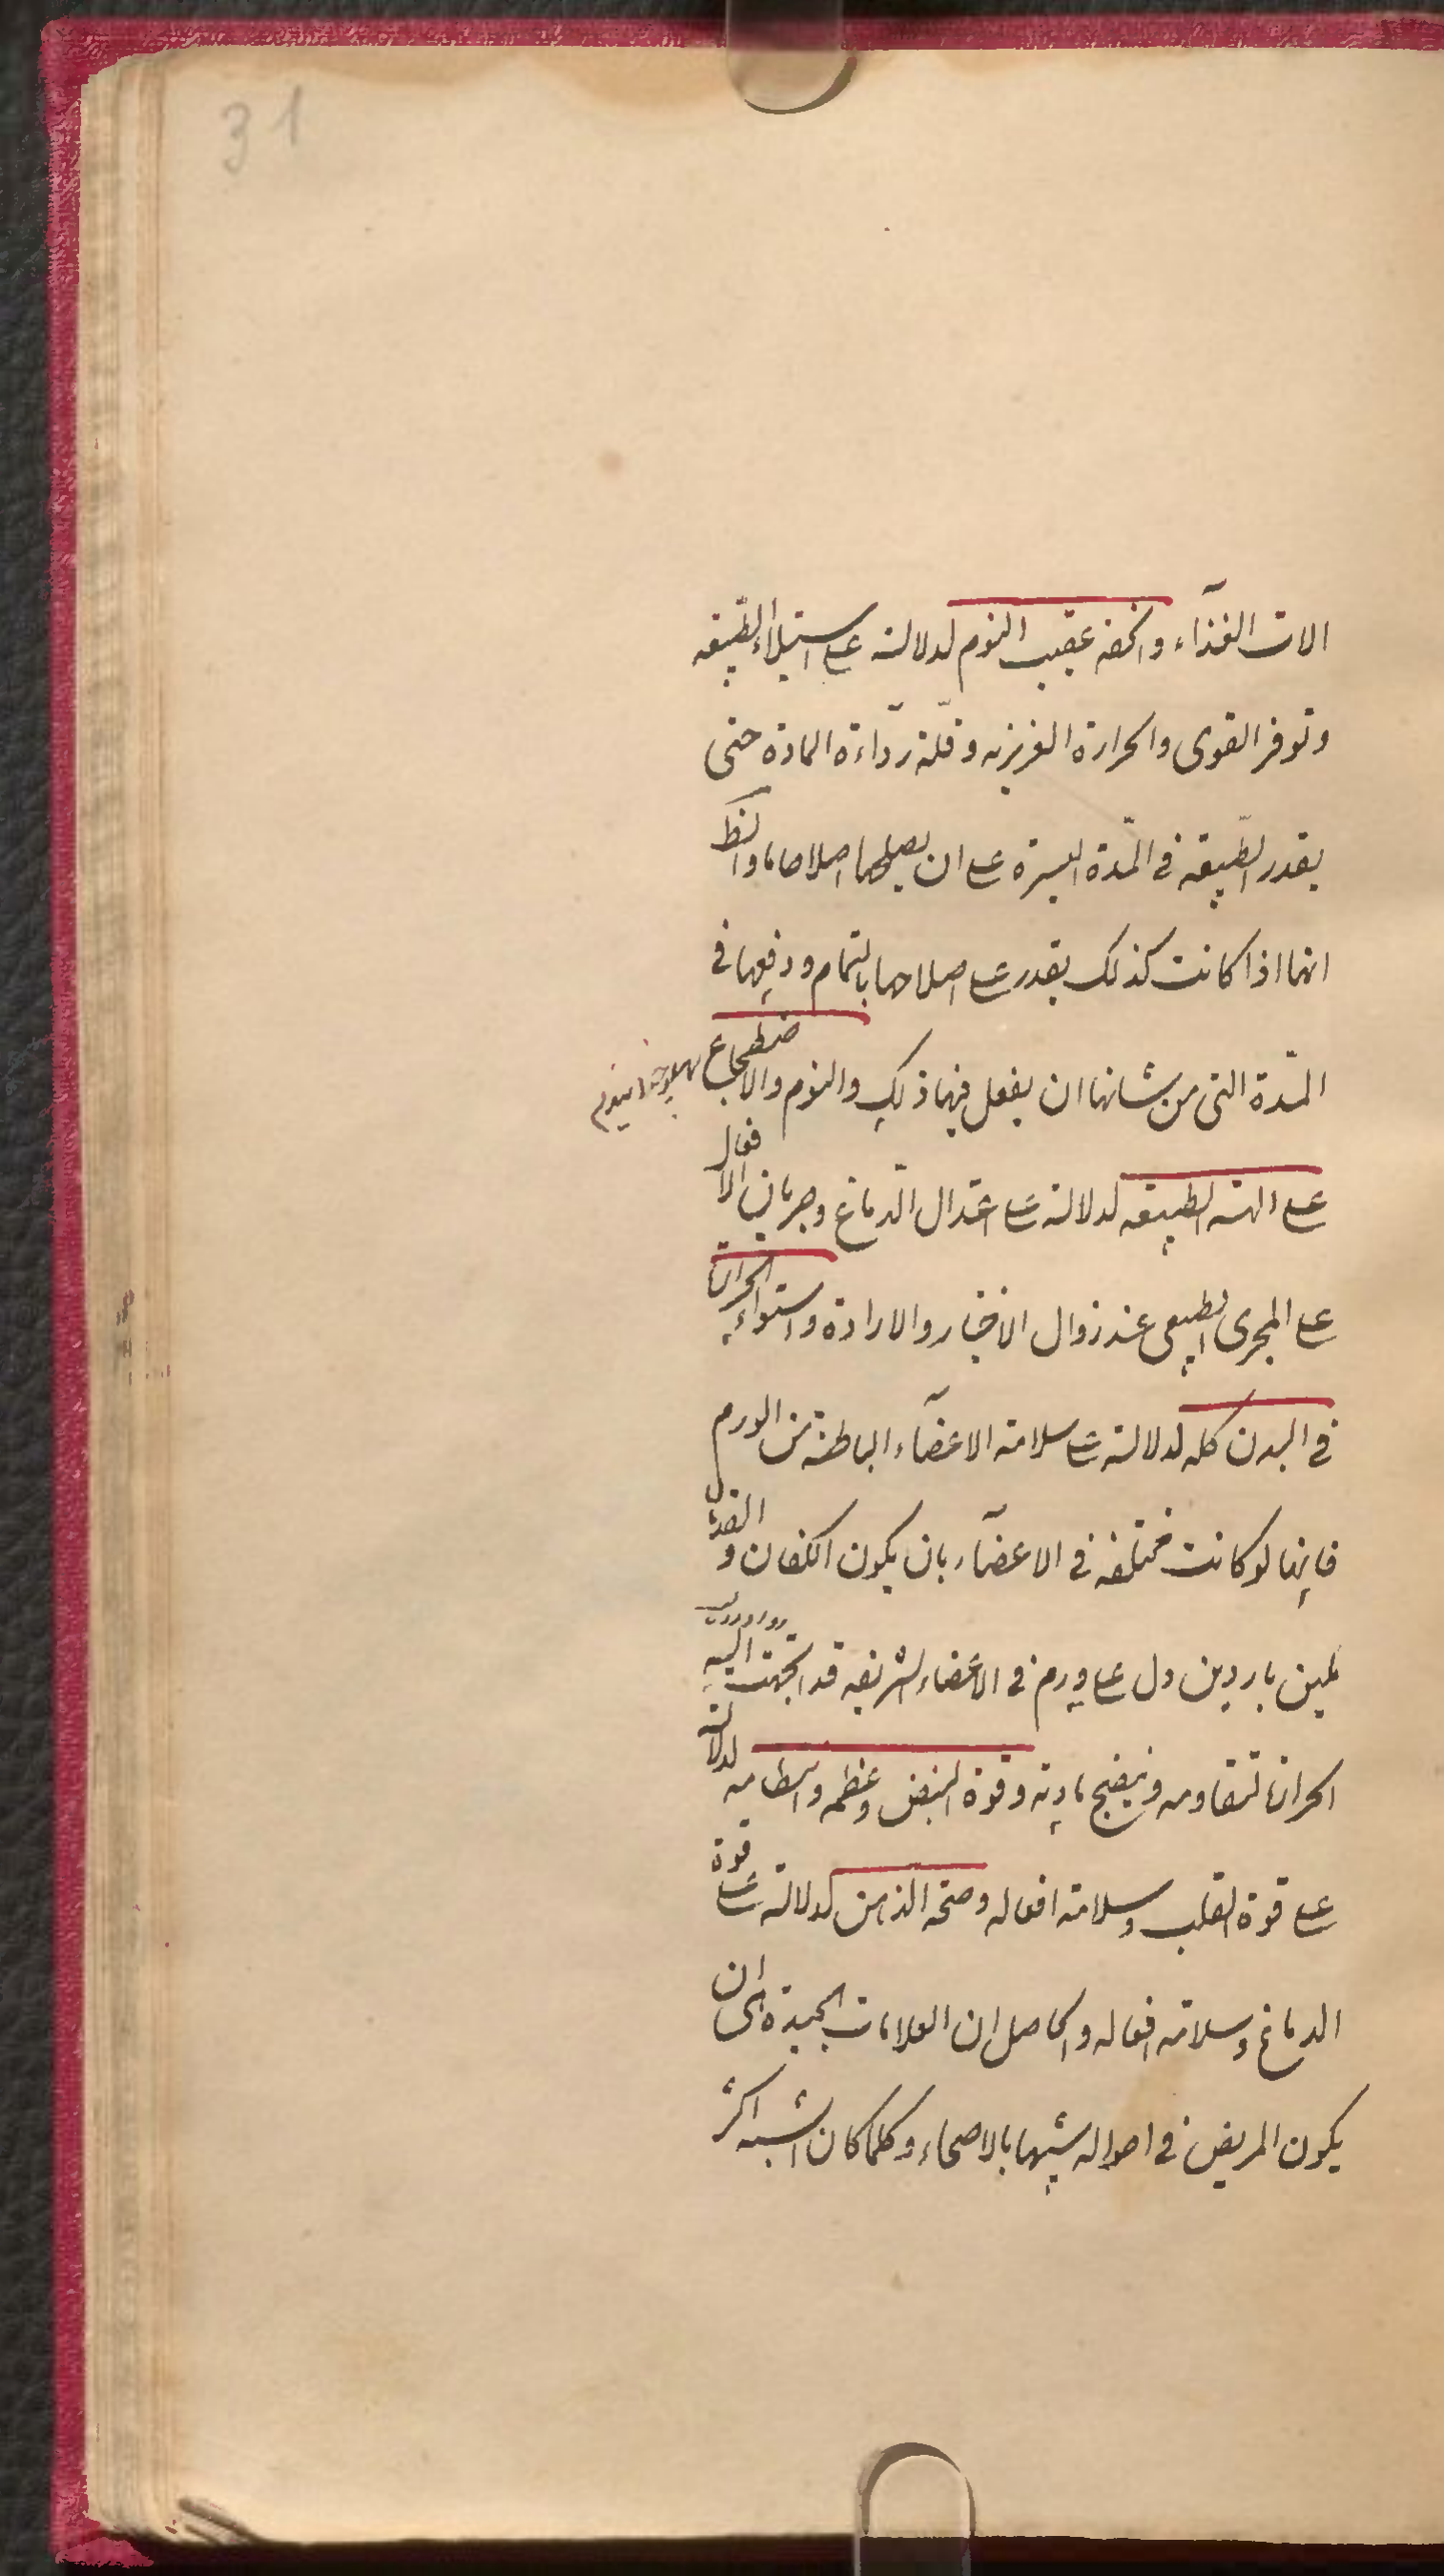 31
الات الغذآء والخفه عقيب النوم لدلالته على استيلاء الطبيعه
وتوفر القوى والحرارة الغريزيه وقلّة ردآءة المادة حتى
يقدر الطبيعه فى المدّة اليسيرة على ان يصلحها اصلاحا ما والنظ
انها اذا كانت كذلك يقدر على اصلاحها بالتمام ودفعها فى
المدّة التى من شانها ان يفعل فيها ذلك والنوم والاضطجاع
على الهيئه الطبيعه لدلالته على اعتدال الدماغ وجريان الافعال
على المجرى الطبيعى عند زوال الاختيار والارادة واستواء الحرارة
فى البدن كله لدلالته على سلامة الاعضآء الباطنة من الورم
فانها لو كانت مختلفه فى الاعضآء بان يكون الكفان والقدمان
باردين دل على ورم فى الاعضاء الشريفه قد اتجهت اليه
الحرارة لتقاومه وينضج مادته وقوة النبض وعظمه وانتظامه لدلالته
على قوة القلب وسلامة افعاله وصحة الذهن لدلالته على قوة
الدماغ وسلامة افعاله والحاصل ان العلامات الجيدة هى ان
يكون المريض فى احواله شبيها بالاصحاء وكلما كان اشبه اكثر